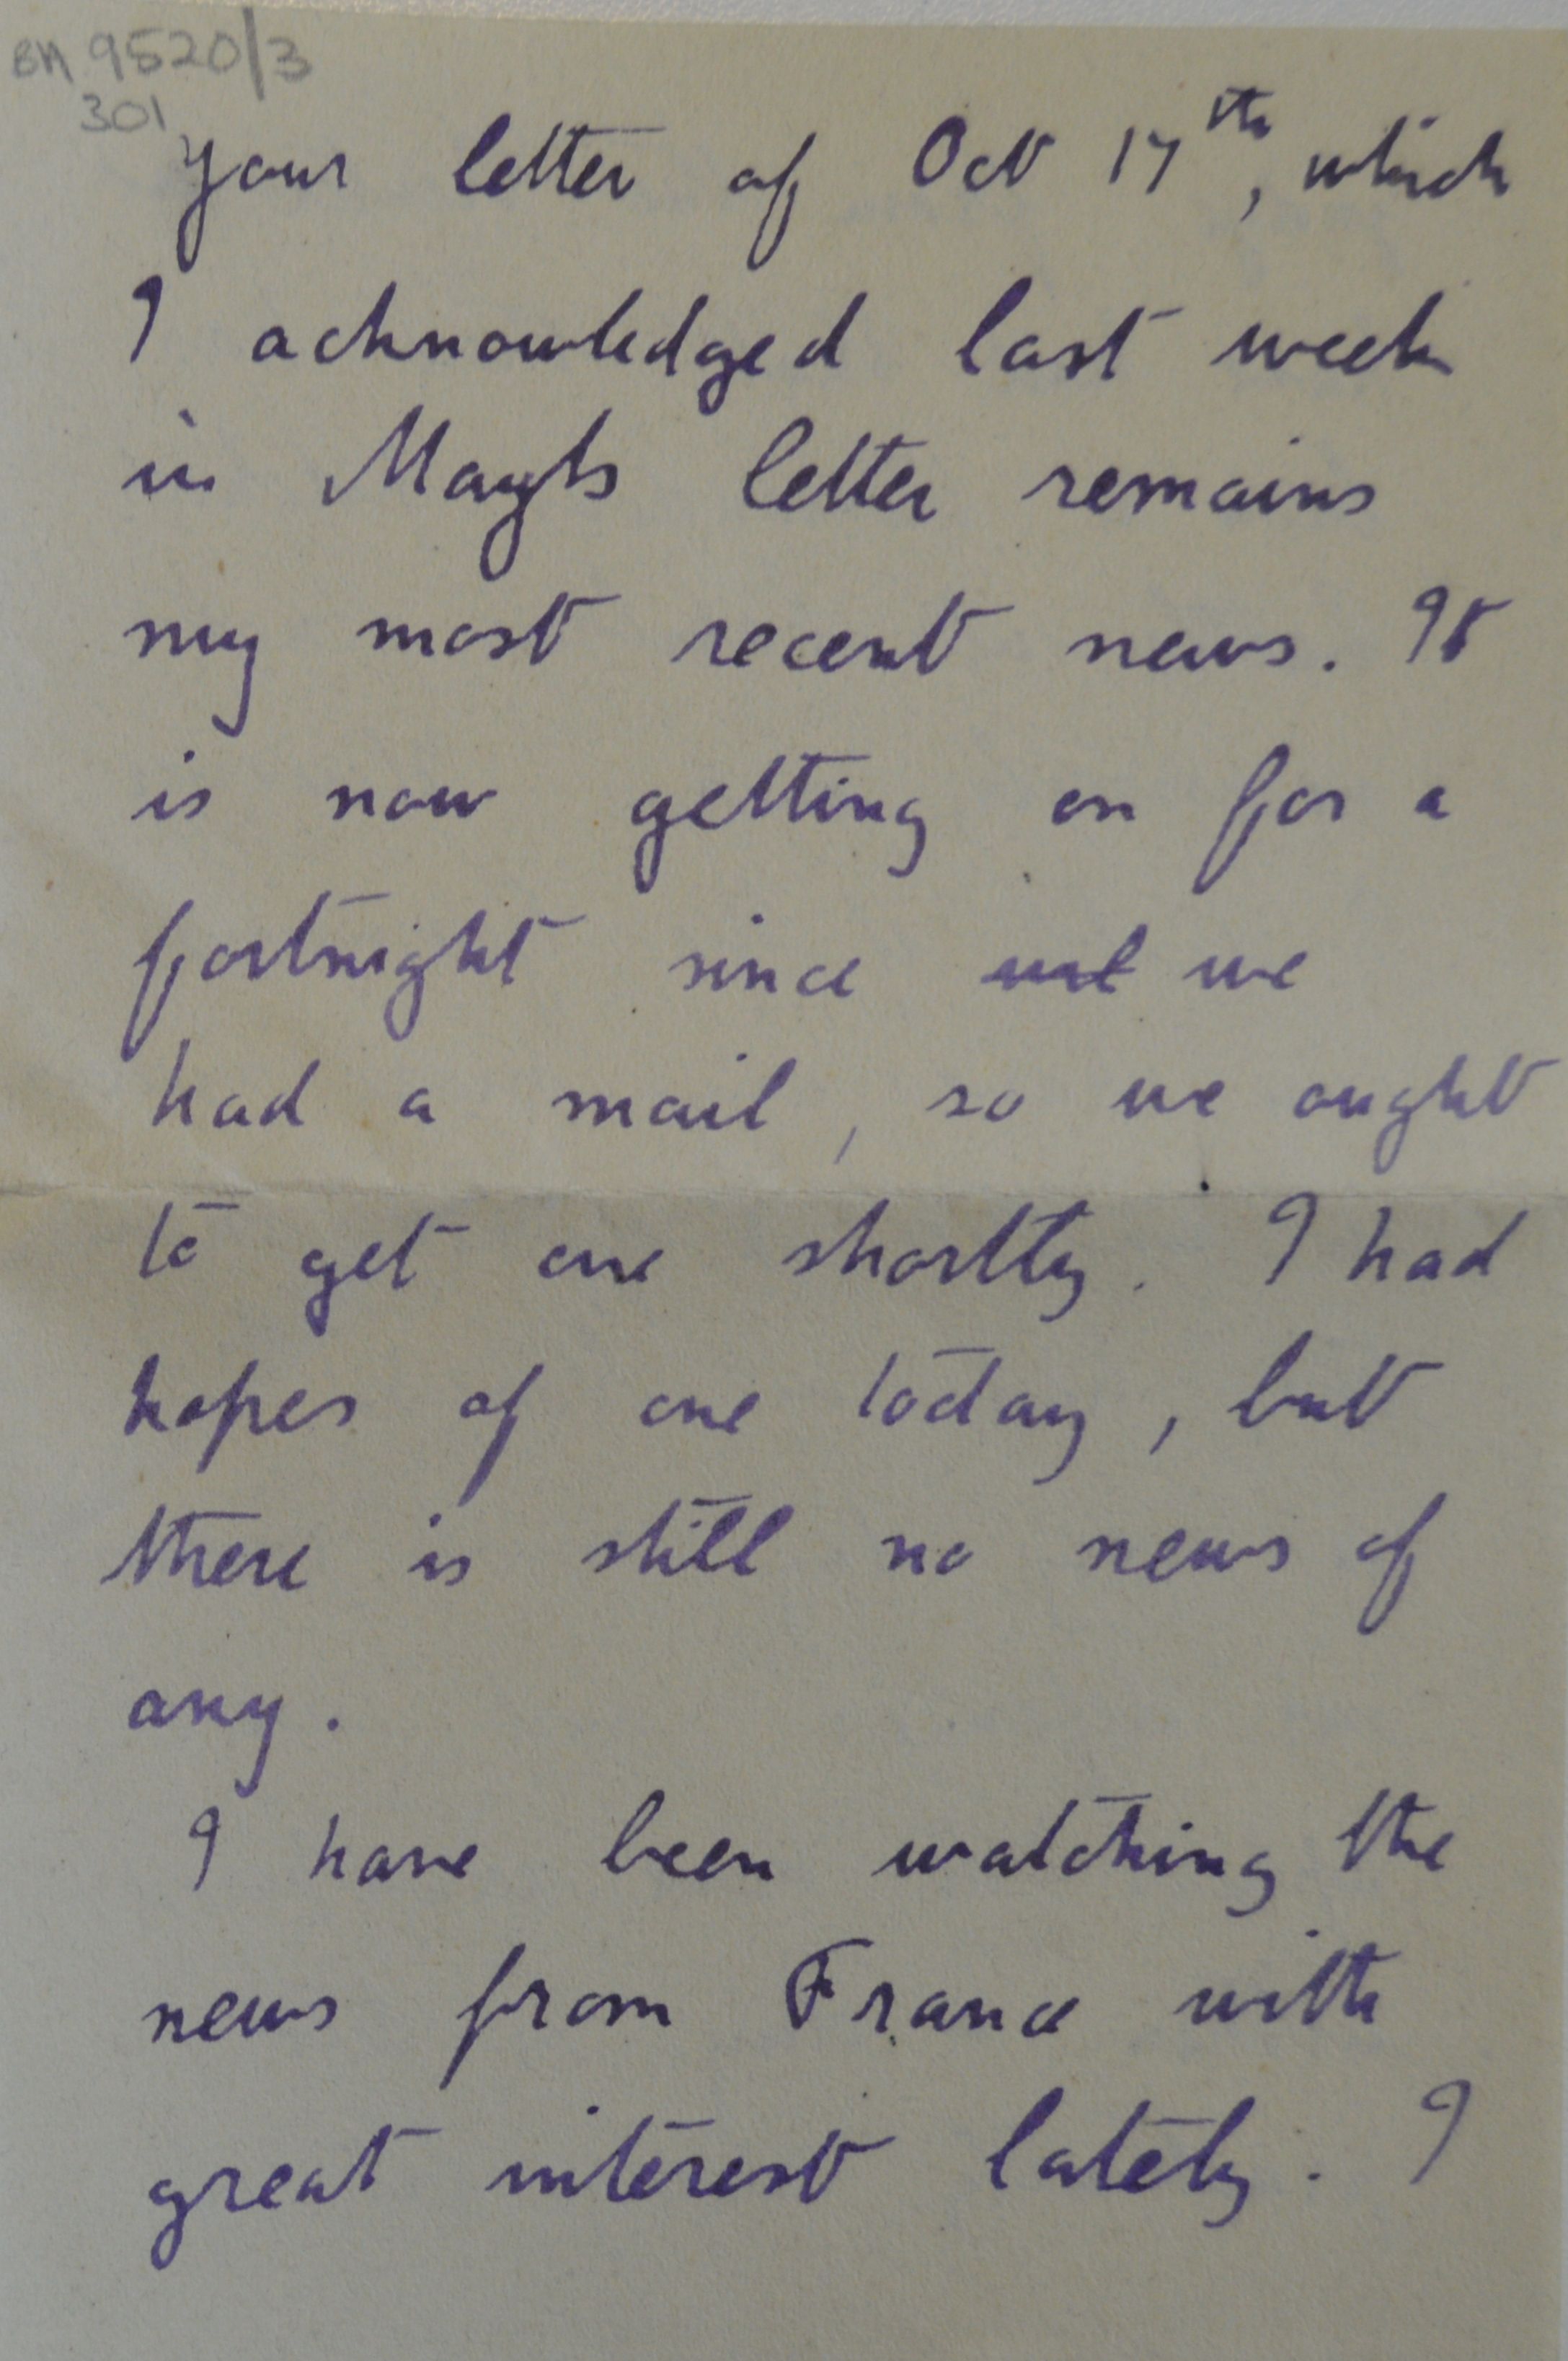 9520/3
301
Your letter of Oct 17th, which
I acknowledged last week
in letter remains
my most recent news. It
is now getting on for a
fortnight since we
had a mail, so we ought
to get one shortly. I had
hopes of one today, but
there is still no news of
any.
I have been watching the
news from France with
great interest lately. I